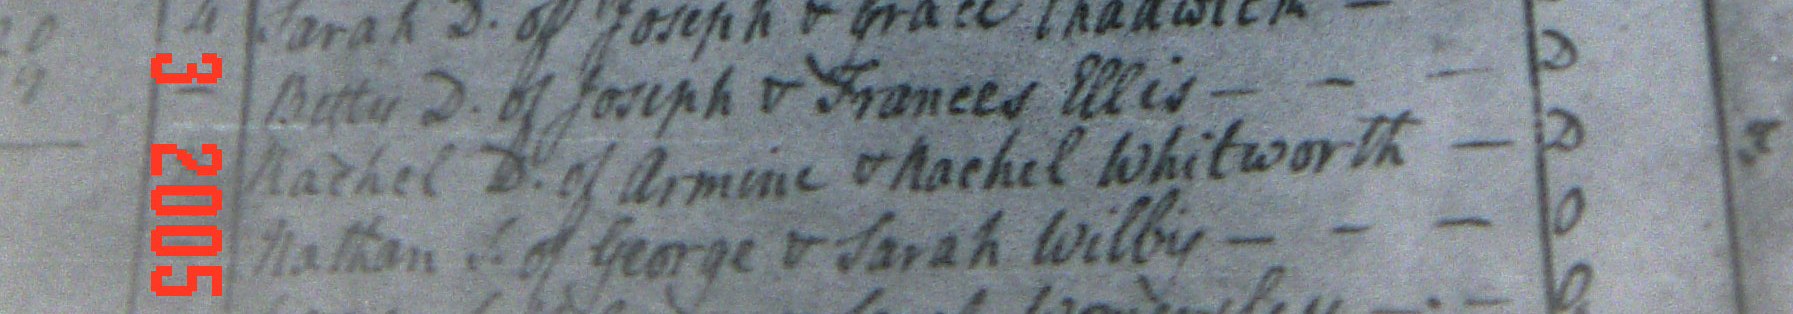 Sarah D. of Joseph & Grace Chadwick —
Betty D. of Joseph & Frances Ellis — — — D
Rachel D. of Armine & Rachel Whitworth — D
Nathan S. of George & Sarah Wilby — — — D
3 2005